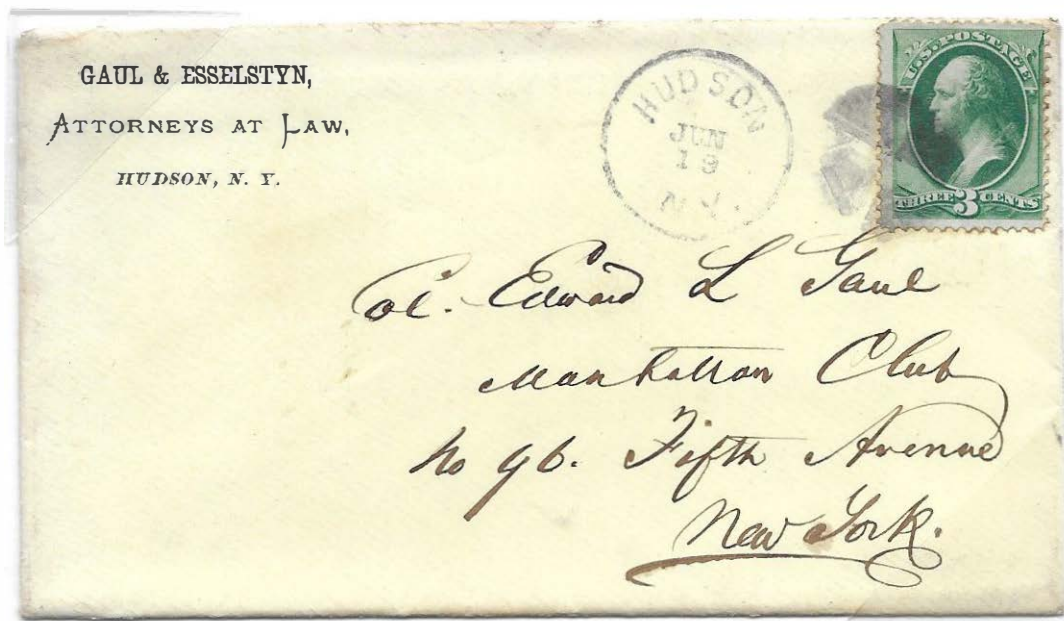 GAUL & ESSELSTYN,
ATTORNEYS AT LAW,
HUDSON, N. Y.
HUDSON
JUN
19
N.Y.
U.S. POSTAGE
THREE 3 CENTS
Col. Edward L Gaul
Manhattan Club
No 96. Fifth Avenue
New York.